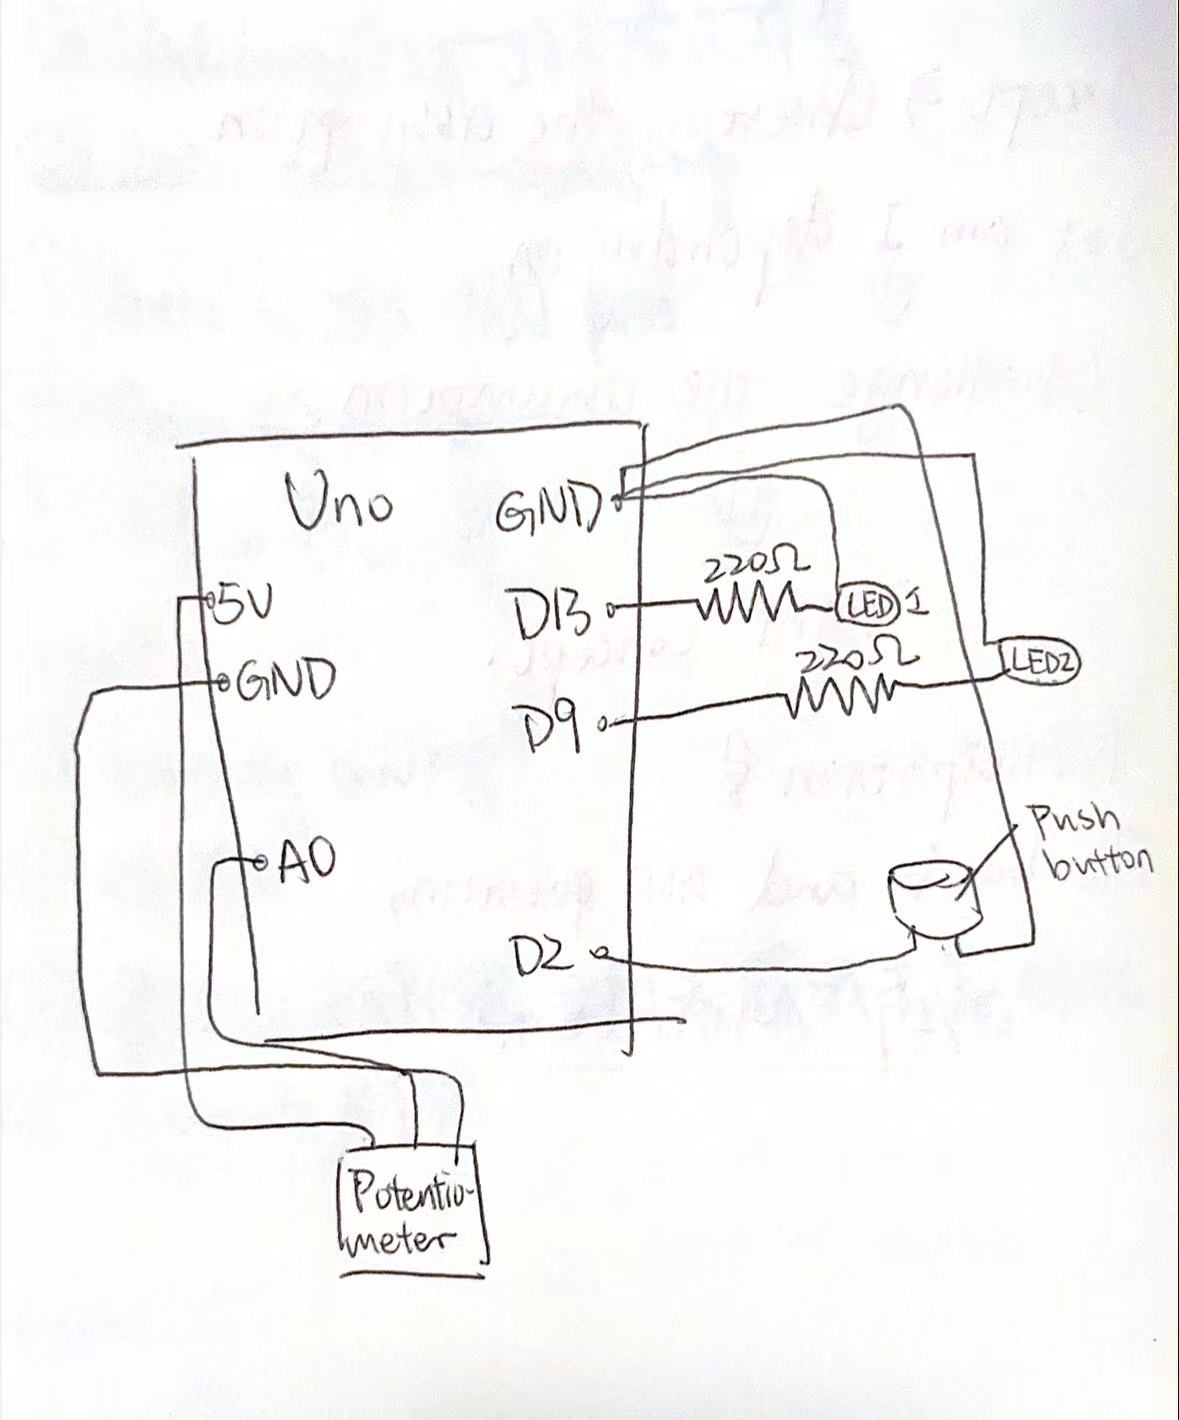 Uno
GND
5V
GND
A0
D13
D9
D2
220Ω
LED 1
220Ω
LED2
Push
button
Potentio-
meter